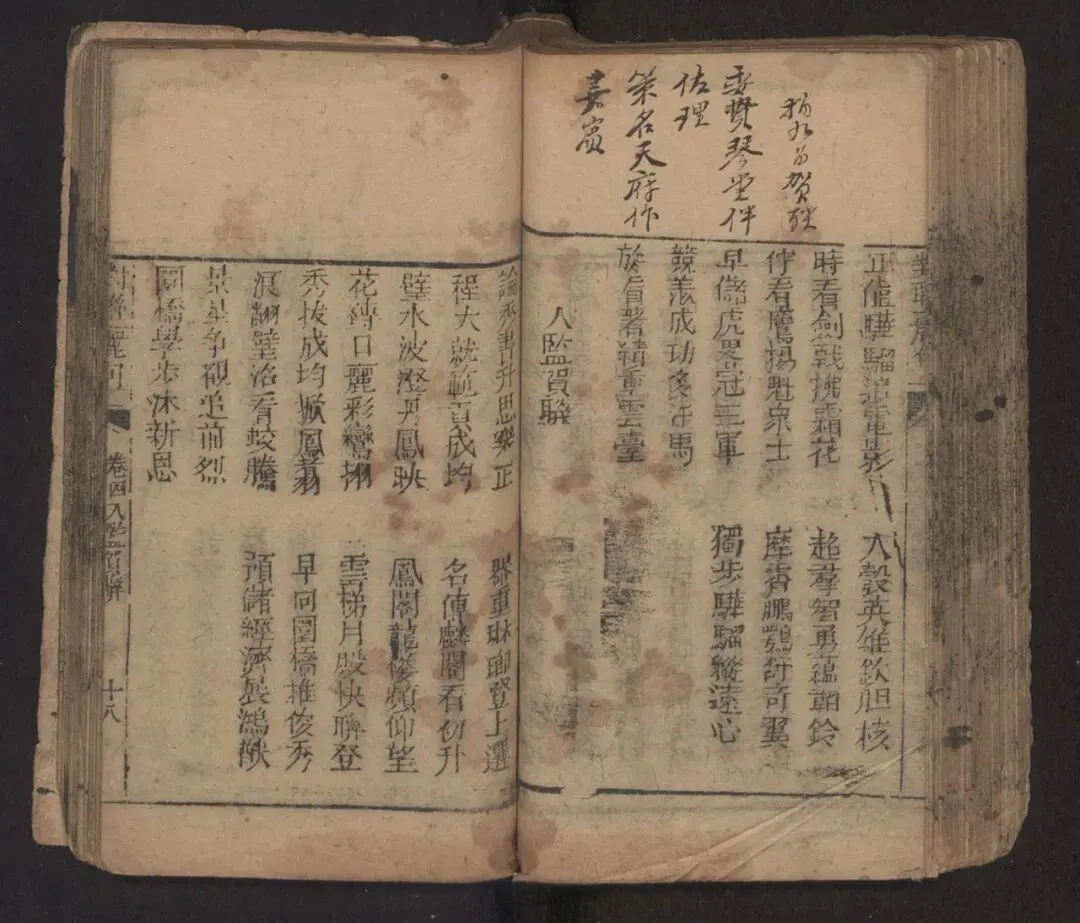 賀聯
委贄琴堂伴
佐理
策名天府作
嘉賓
正催驊騮追電影
入彀英雄欽胆核
時看劍戟拂霜花
超羣智勇蘊韜鈐
佇看鷹揚魁衆士
摩霄鵬鶚舒奇翼
早儲虎畧冠三軍
獨步驊騮縱遠心
競羨成功多汗馬
旋看著績重雲臺
入監賀聯
論秀書升思樂正
器重琳瑯登上選
程大就範貢成均
名傳麟閣看初升
璧水波澄丹鳳映
鳳閣龍修頻仰望
花磚日麗彩鸞翔
雲梯月殿快聯登
秀拔成均掀鳳翥
早向圜橋推俊秀
浪翻璧沼看蛟騰
預儲經濟展鴻猷
景星爭覩追前烈
圜橋學步沐新恩
卷四入學監賀聯
十八